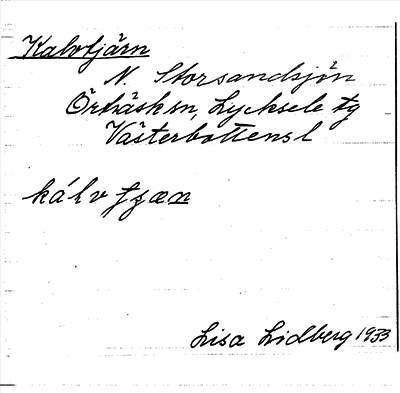 Kalvtjärn
N. Storsandsjön
Örträsk sn, Lycksele tg
Västerbottens l
kálv
Lisa Lidberg 1933